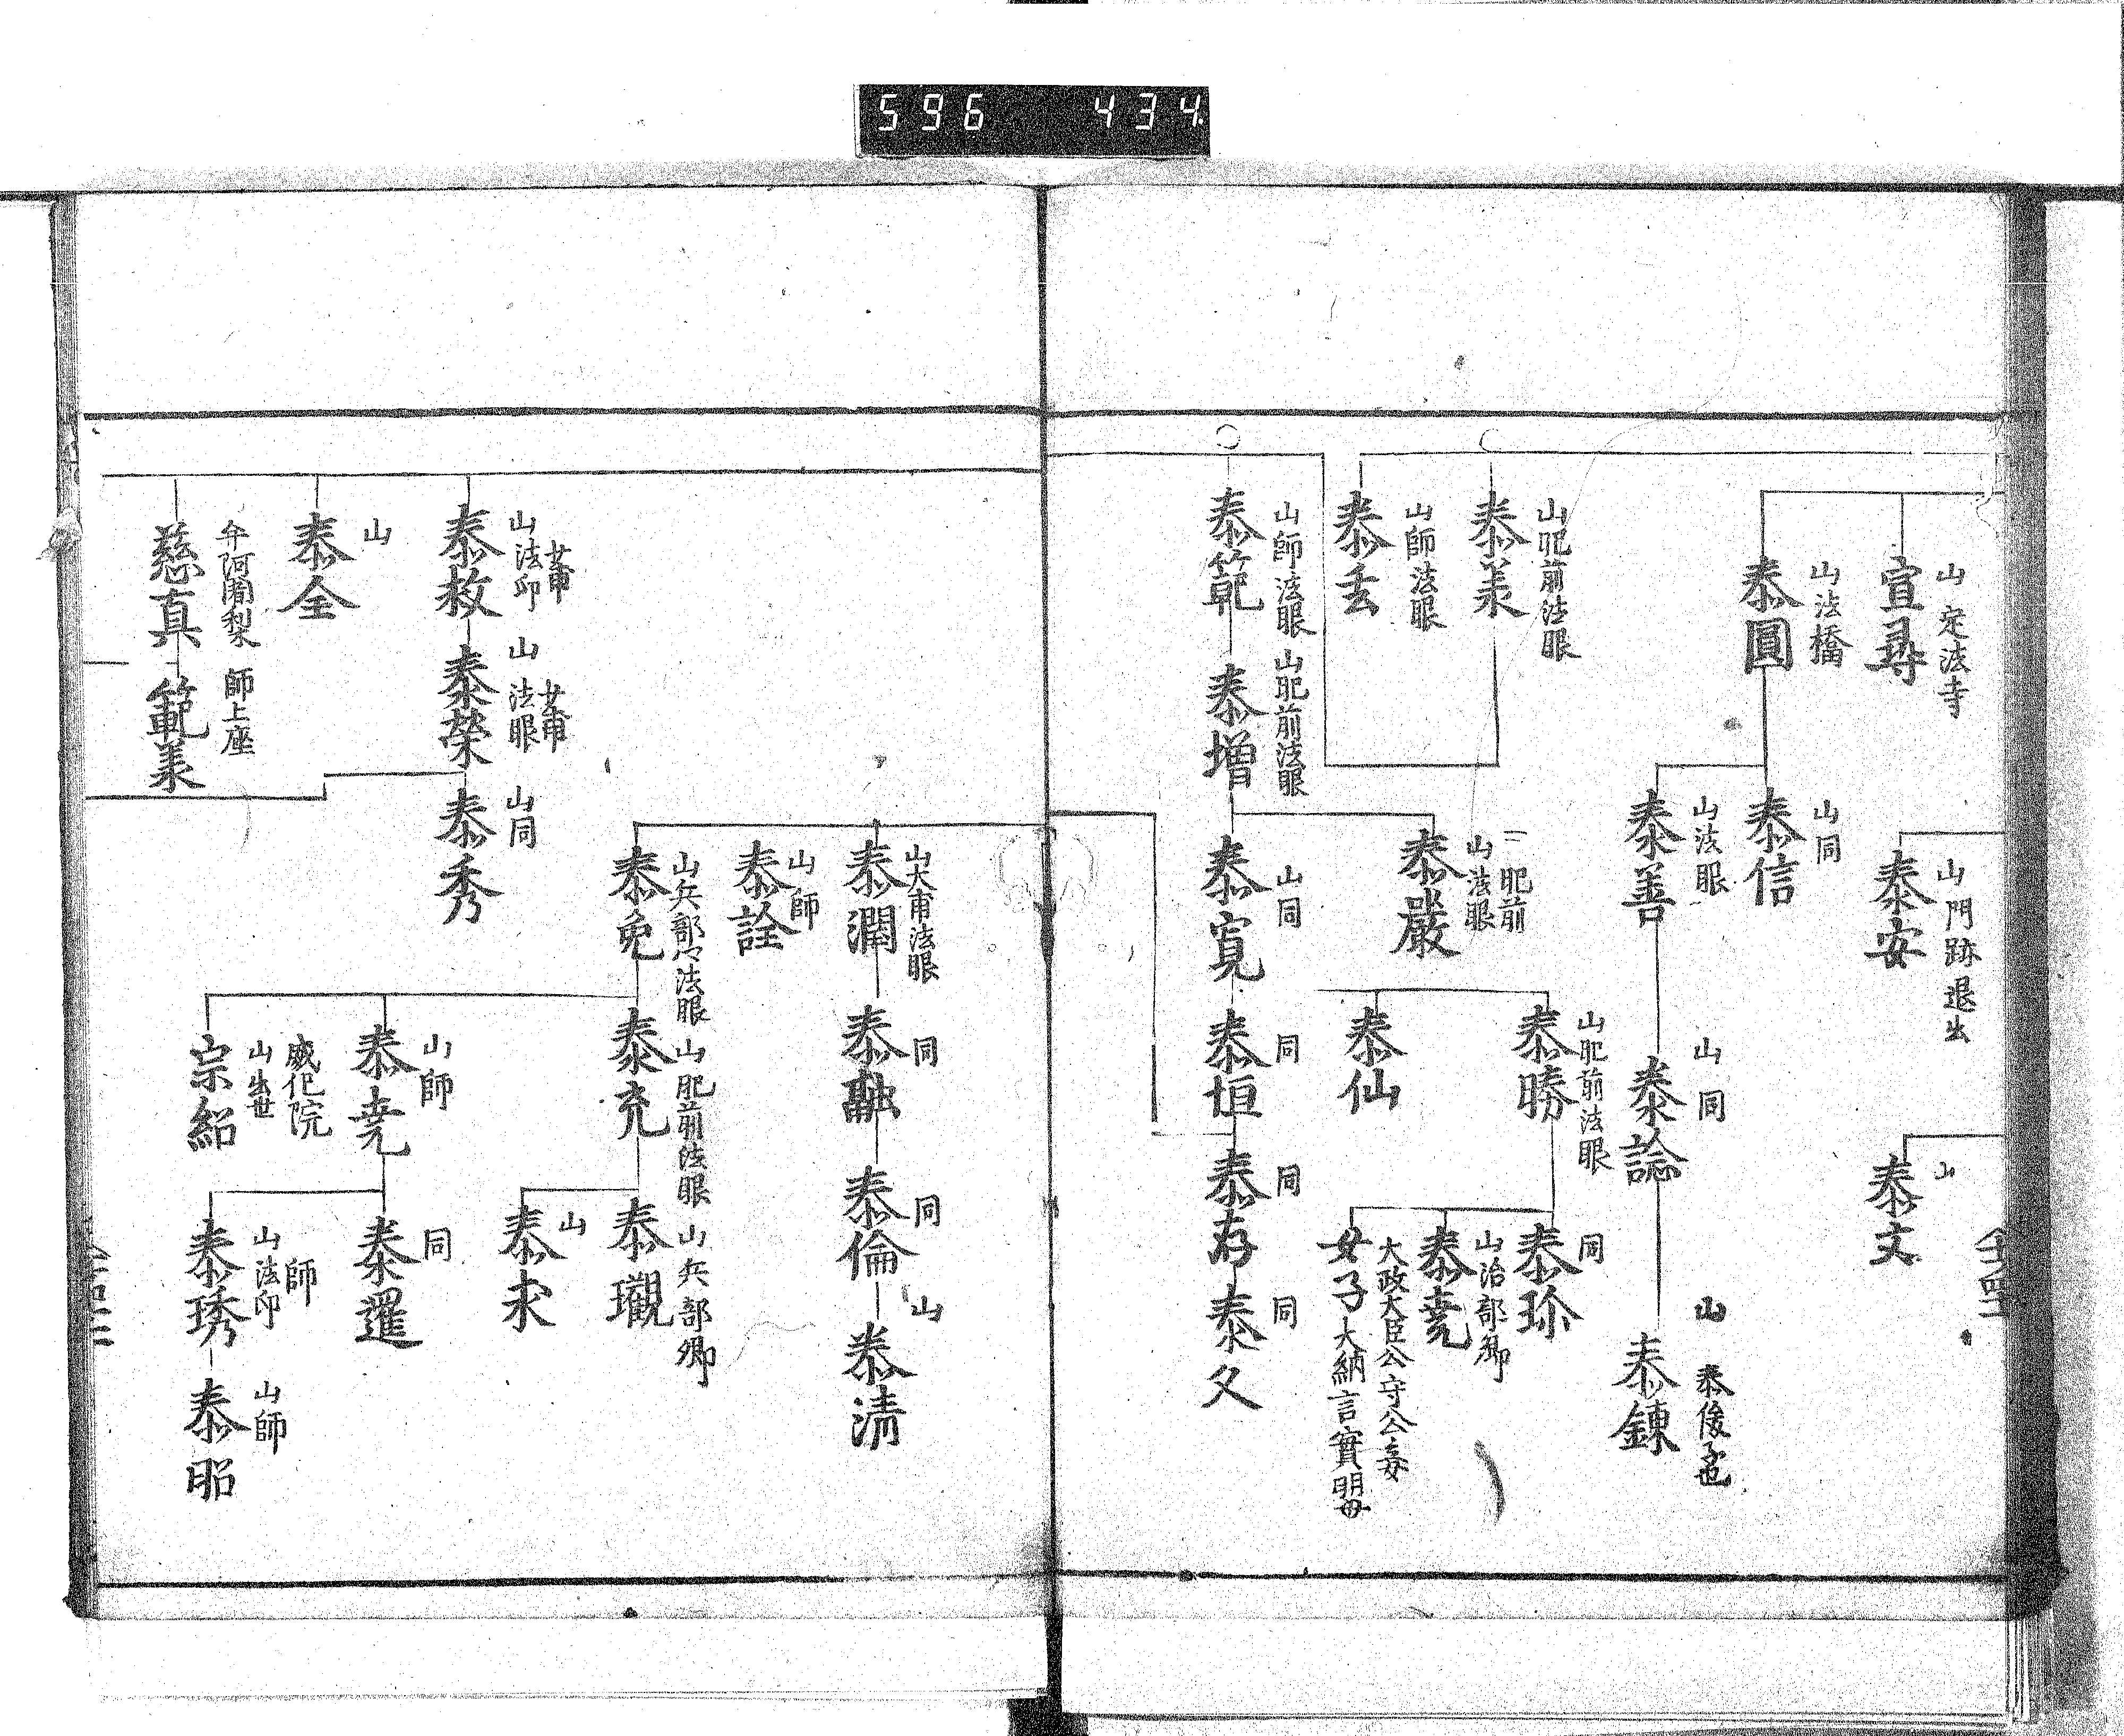 596 434
山定法寺
宣尋
山法橋
泰圓
山門跡退出
泰安
山
泰文
山同
泰信
山法眼
泰善
山同
泰諗
山 泰俊子也
泰錬
山肥前法眼
泰兼
山師法眼
泰玄
山師法眼
泰範
山肥前法眼
泰増
一肥前
山法眼
泰嚴
山同
泰寛
山肥前法眼
泰勝
泰仙
同
泰恒
同
泰珎
山治部卿
泰尭
大政大臣公守公妾
女子 大納言實明母
同
泰存
同
泰久
山大甫法眼
泰潤
同
泰融
同
泰倫
山
泰清
山師
泰詮
山兵部々法眼
泰免
山肥前法眼
泰充
山兵部卿
泰瓘
山
泰求
山師
泰尭
同
泰暹
威化院
山出世
宗紹
師
山法印
泰琇
山師
泰昭
山法印
泰救
山法眼
泰榮
山同
泰秀
山
泰全
弁阿闍梨
慈真
師上座
範兼